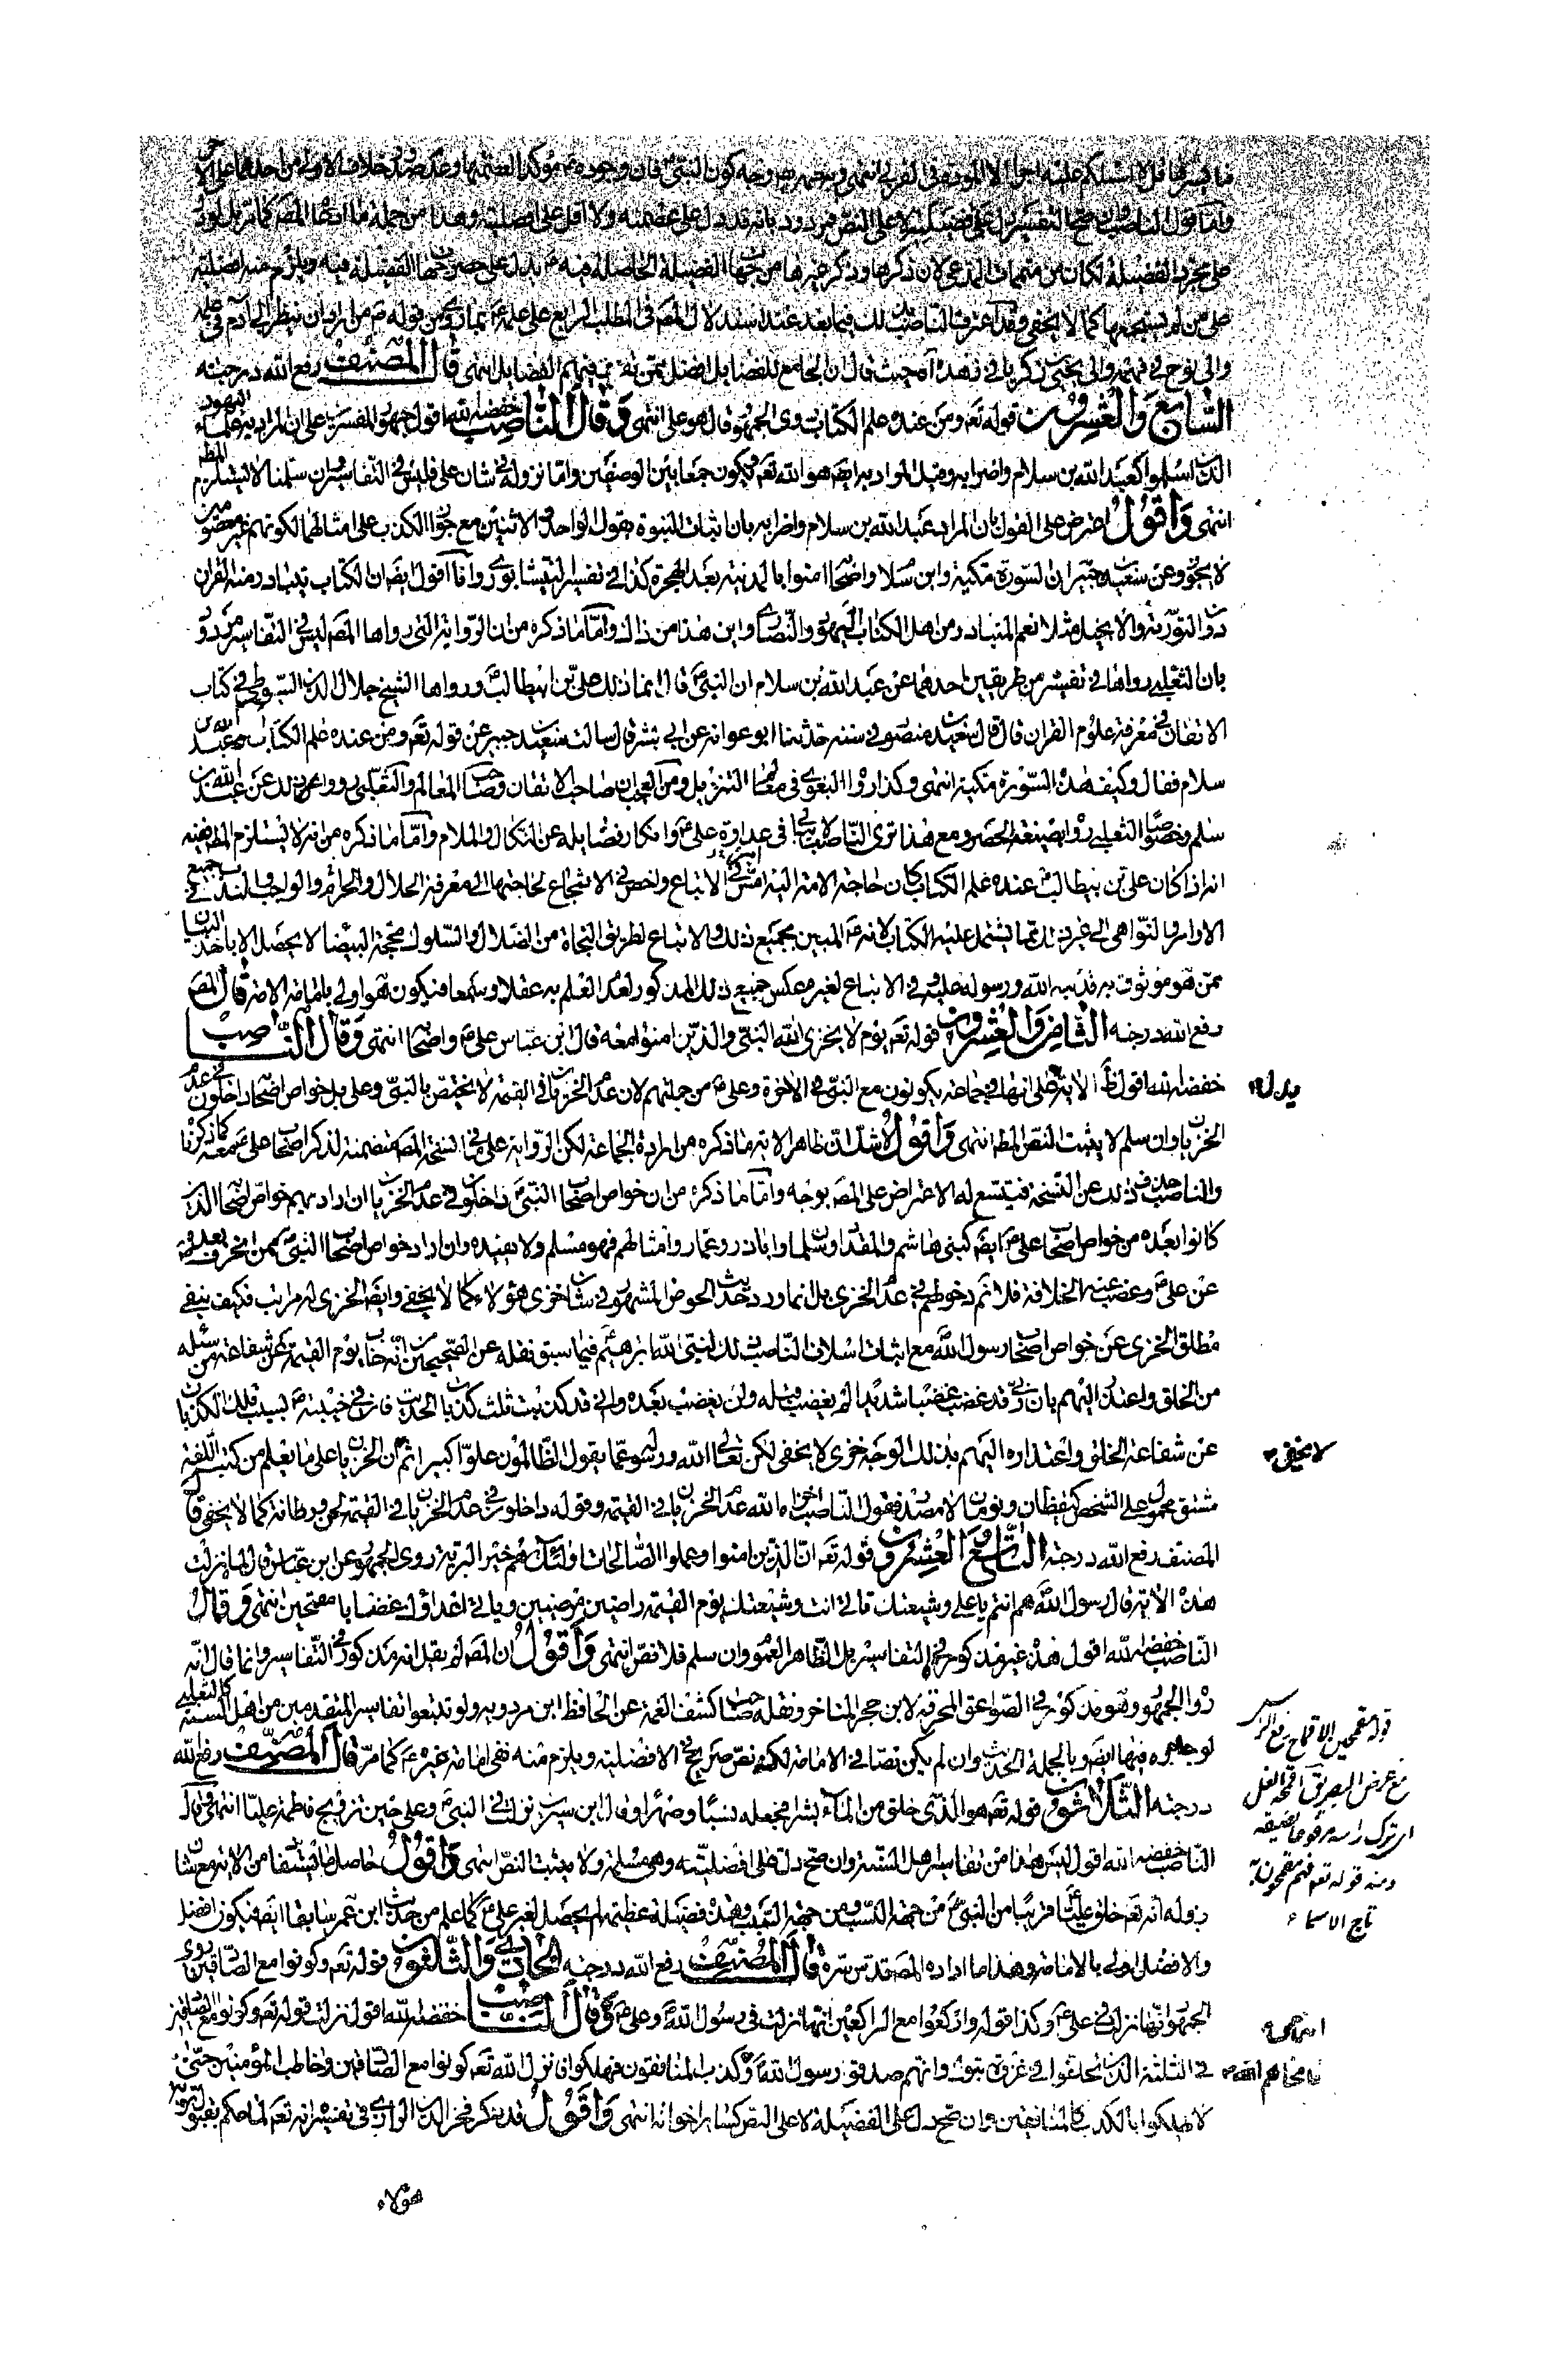 وأما قول الناصب وإن صح التفسير دل على فضيلته لا على النص فمردود بأنه قد دل على عصمته ولا أقل على أفضليته وهذا من جملة ما ادعاه المصـ كما مر بل لو دل
على مجرد الفضيلة لكان من متممات المدعى لأن ذكرها وذكر غيرها من جهات الفضيلة الحاصلة فيه ع يدل على حصر جهات الفضيلة فيه ويلزم منه أفضليته
على من لم يستجمعها كما لا يخفى وقد اعترف الناصب بذلك فيما بعد عند استدلال المصـ في المطلب الرابع على علمه ع بما روي من قوله ص من أراد أن ينظر إلى آدم في علمه
وإلى نوح في فهمه وإلى يحيى بن زكريا في زهده آه حيث قال إن الجامع للفضايل أفضل ممن تفرق فيهم الفضايل انتهى قال المصنف رفع الله درجته
السابع والعشرون قوله تعـ ومن عنده علم الكتاب روى الجمهور قال هو علي انتهى وقال الناصب خفضه الله أقول جمهور المفسرين على أن المراد به علماء اليهود
الذين أسلموا كعبد الله بن سلام وأضرابه وقيل المراد به أيضـ هو الله تعـ ويكون جمعا بين الوصفين وأما نزوله في شأن علي فليس في التفاسير وإن سلمنا لا يستلزم المطـ
انتهى وأقول اعترض على القول بأن المراد عبد الله بن سلام وأضرابه بأن إثبات النبوة بقول الواحد والاثنين مع جواز الكذب على أمثالهما لكونهم غير معصومين
لا يجوز وعن سعيد بن جبير أن السورة مكية وابن سلام وأصحابه آمنوا بالمدينة بعد الهجرة كذا في تفسير النيشابوري وأنا أقول أيضـ أن الكتاب يتبادر منه القرآن
دون التورية والإنجيل مثلا نعم المتبادر من أهل الكتاب اليهود والنصارى وأين هذا من ذاك وأما ما ذكره من أن الرواية التي رواها المصـ ليس في التفاسير مردود
بأن الثعلبي رواها في تفسيره من طريقين أحدهما عن عبد الله بن سلام أن النبي ص قال إنما ذلك علي بن أبيطالب ع ورواها الشيخ جلال الدين السيوطي في كتاب
الاتقان في معرفة علوم القرآن قال قال سعيد بن منصور في سننه حدثنا أبو عوانة عن أبي بشر قال سألت سعيد بن جبير عن قوله تعـ ومن عنده علم الكتاب أهو عبد الله بن
سلام فقال وكيف وهذه السورة مكية انتهى وكذا رواه البغوي في معالم التنزيل ومن العجب أن صاحب الاتقان وصاحب المعالم والثعلبي رووا عن ذلك عن عبد الله بن
سلام وخصوصا الثعلبي رواه بصيغة الحصر ومع هذا ترى الناصب لا يبالي في عداوة علي ع وإنكار فضايله عن النكال والملام وأما ما ذكره من أنه لا يستلزم المطـ ففيه
أنه إذا كان علي بن أبيطالب ع عنده علم الكتاب كان حاجة الأمة إليه أمس في الاتباع وأخص في الانتجاع لحاجتها إلى معرفة الحلال والحرام والواجب والندب في جميع
الأوامر والنواهي إلى غير ذلك مما يشتمل عليه الكتاب لأنه ع المبين بجميع ذلك والاتباع لطريق النجاة من الضلال والسلوك محجة البيضا لا يحصل إلا بأخذ البيان
ممن هو موثوق به من قبل الله ورسوله صلى وفي الاتباع لغيره عكس جميع ذلك المذكور لعدم العلم به عقلا وسمعا فيكون هو أولى بإمامة الأمة قال المصـ
رفع الله درجته الثامن والعشرون قوله تعـ يوم لا يخزى الله النبي والذين آمنوا معه قال ابن عباس علي ع وأصحابه انتهى وقال الناصب
خفضه الله أقول ظـ الآية يدل على أنها في جماعة يكونون مع النبي في الآخرة وعلي ع من جملتهم لأن عدم الخزيان في القيمة لا يختص بالنبي وعلي بل خواص أصحابه داخلون في عدم
الخزيان وإن سلم لا يثبت النص المطـ انتهى وأقول لا شك أن ظاهر الآية ما ذكره من إرادة الجماعة لكن الرواية على ما في نسخة المصـ متضمنة لذكر أصحاب علي ع معه كما ذكرنا
والناصب حذف ذلك عن النسخة فيتسع له الاعتراض على المصـ بوجه وأما ما ذكره من أن خواص أصحاب النبي ص داخلون في عدم الخزيان إن أراد بهم خواص أصحابه الذين
كانوا بعده من خواص أصحاب علي ع أيضـ كبني هاشم والمقداد وسلمان وأبا ذر وعمار وأمثالهم فهو مسلم ولا يفيده وإن أراد خواص أصحاب النبي ص ممن انحرف بعده
عن علي ع وغصب عنه الخلافة فلا نم دخولهم في عدم الخزى بل إنما ورد حديث الحوض المشهور في شأن خزى هؤلاء كما لا يخفى وأيضـ الخزى له مراتب فكيف ينفي
مطلق الخزى عن خواص أصحاب رسول الله مع إثبات أسلاف الناصب ذلك لنبي الله إبراهيم فيما سبق نقله عن الصحيحين من أنه خاب يوم القيمة عن شفاعة من سئله
من الخلق واعتذر إليهم بأن ربي قد غضب غضبا شديدا لم يغضب قبله ولن يغضب بعده وإني قد كذبت ثلث كذبات الحديث فإن في خيبته ع بسبب تلك الكذبات
عن شفاعة الخلق واعتذاره إليهم بذلك الوجه خزى لا يخفى لكن تعالى الله ورسوله عما يقول الظالمون علوا كبيرا ثم إن الخزيان على ما يعلم من كتب اللغة
مشتق محمول على الشخص كيقظان ونومان لا مصدر فقول الناصب أخزاه الله عدم الخزيان في القيمة وقوله داخلون في عدم الخزيان في القيمة لحن ورطانة كما لا يخفى قال
المصنف رفع الله درجته التاسع والعشرون قوله تعـ إن الذين آمنوا وعملوا الصالحات أولئك هم خير البرية روى الجمهور عن ابن عباس قال لما نزلت
هذه الآية قال رسول الله ص هم أنتم يا علي وشيعتك تأتي أنت وشيعتك يوم القيمة راضين مرضيين ويأتي أعداؤك غضابا مقمحين انتهى وقال
الناصب خفضه الله أقول هذا غير مذكور في التفاسير بل الظاهر العموم وإن سلم فلا نص انتهى وأقول إن المصـ لم يقل أنه مذكور في التفاسير وإنما قال أنه
رواه الجمهور وهو مذكور في الصواعق المحرقة لابن حجر المتأخر ونقله صاحب كشف الغمة عن الحافظ ابن مردويه ولو تتبعوا تفاسير المتقدمين من أهل السنة كالثعلبي
لوجدوه فيها أيضـ وبالجملة الحديث وإن لم يكن نصا في الإمامة لكنه نص صريح في الأفضلية ويلزم منه نفي إمامة غيره ع كما مر قال المصنف رفع الله
درجته الثلاثون قوله تعـ هو الذي خلق من الماء بشرا فجعله نسبا وصهرا وقال ابن سيرين نزلت في النبي ص وعلي حين تزويج فاطمة عليا انتهى وقال
الناصب خفضه الله أقول ليس هذا من تفاسير أهل السنة وإن صح دل على أفضليته وهي مسلمة ولا يثبت النص انتهى وأقول حاصل ما يستفاد من الآية مع شأن
نزوله أنه تعـ خلق عليا ع قريبا من النبي ص من جهة النسب ومن جهة السبب وهذه فضيلة عظيمة لم يحصل لغير علي ع كما علم من حديث ابن عمر سابقا أيضـ فيكون أفضل
والأفضل أولى بالإمامة وهذا ما أراده المصـ قدس سره قال المصنف رفع الله درجته الحادي والثلاثون قوله تعـ وكونوا مع الصادقين روى
الجمهور أنها نزلت في علي ع وكذا قوله واركعوا مع الراكعين أنها نزلت في رسول الله ص وعلي ع وقال الناصب خفضه الله أقول نزلت قوله تعـ وكونوا مع الصادقين
في الثلثة الذين تخلفوا في غزوة تبوك وأنهم صدقوا رسول الله ص وكذب المنافقون فهلكوا فأنزل الله تعـ كونوا مع الصادقين وخاطب المؤمنين حتى
لا يهلكوا بالكذب كالمنافقين وإن صح دل على الفضيلة لا على النص كسائر أخواته انتهى وأقول قد ذكر فخر الدين الرازي في تفسيره أنه تعـ لما حكم بقبول توبة
هؤلاء
يدل
لا يخفى
قوله مقمحين الإقماح رفع الرأس
مع غض البصر يق أقمحه الغل
إذ ترك رأسه مرفوعا لضيقه
ومنه قوله تعـ فهم مقمحون
تاج الأسماء
انتهى